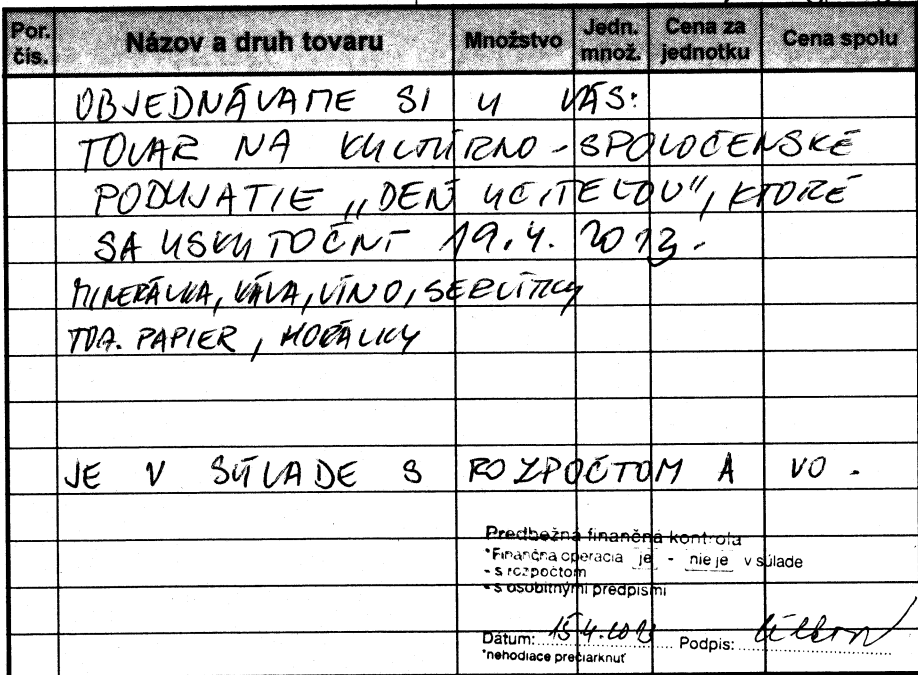 Por. čís. Názov a druh tovaru Množstvo Jedn. množ. Cena za jednotku Cena spolu
OBJEDNÁVAME SI U VÁS:
TOVAR NA KULTÚRNO - SPOLOČENSKÉ
PODUJATIE „DEŇ UČITEĽOV", KTORÉ
SA USKUTOČNÍ 19.4. 2013.
MINERÁLKA, KÁVA, VÍNO, SERVÍTKY
TOA. PAPIER, HORÁLKY
JE V SÚLADE S ROZPOČTOM A VO.
Predbežná finančná kontrola
*Finančná operacia je - nie je v súlade
- s rozpočtom
- s osobitnými predpismi
Dátum: 15.4.2013 Podpis:
*nehodiace prečiarknuť